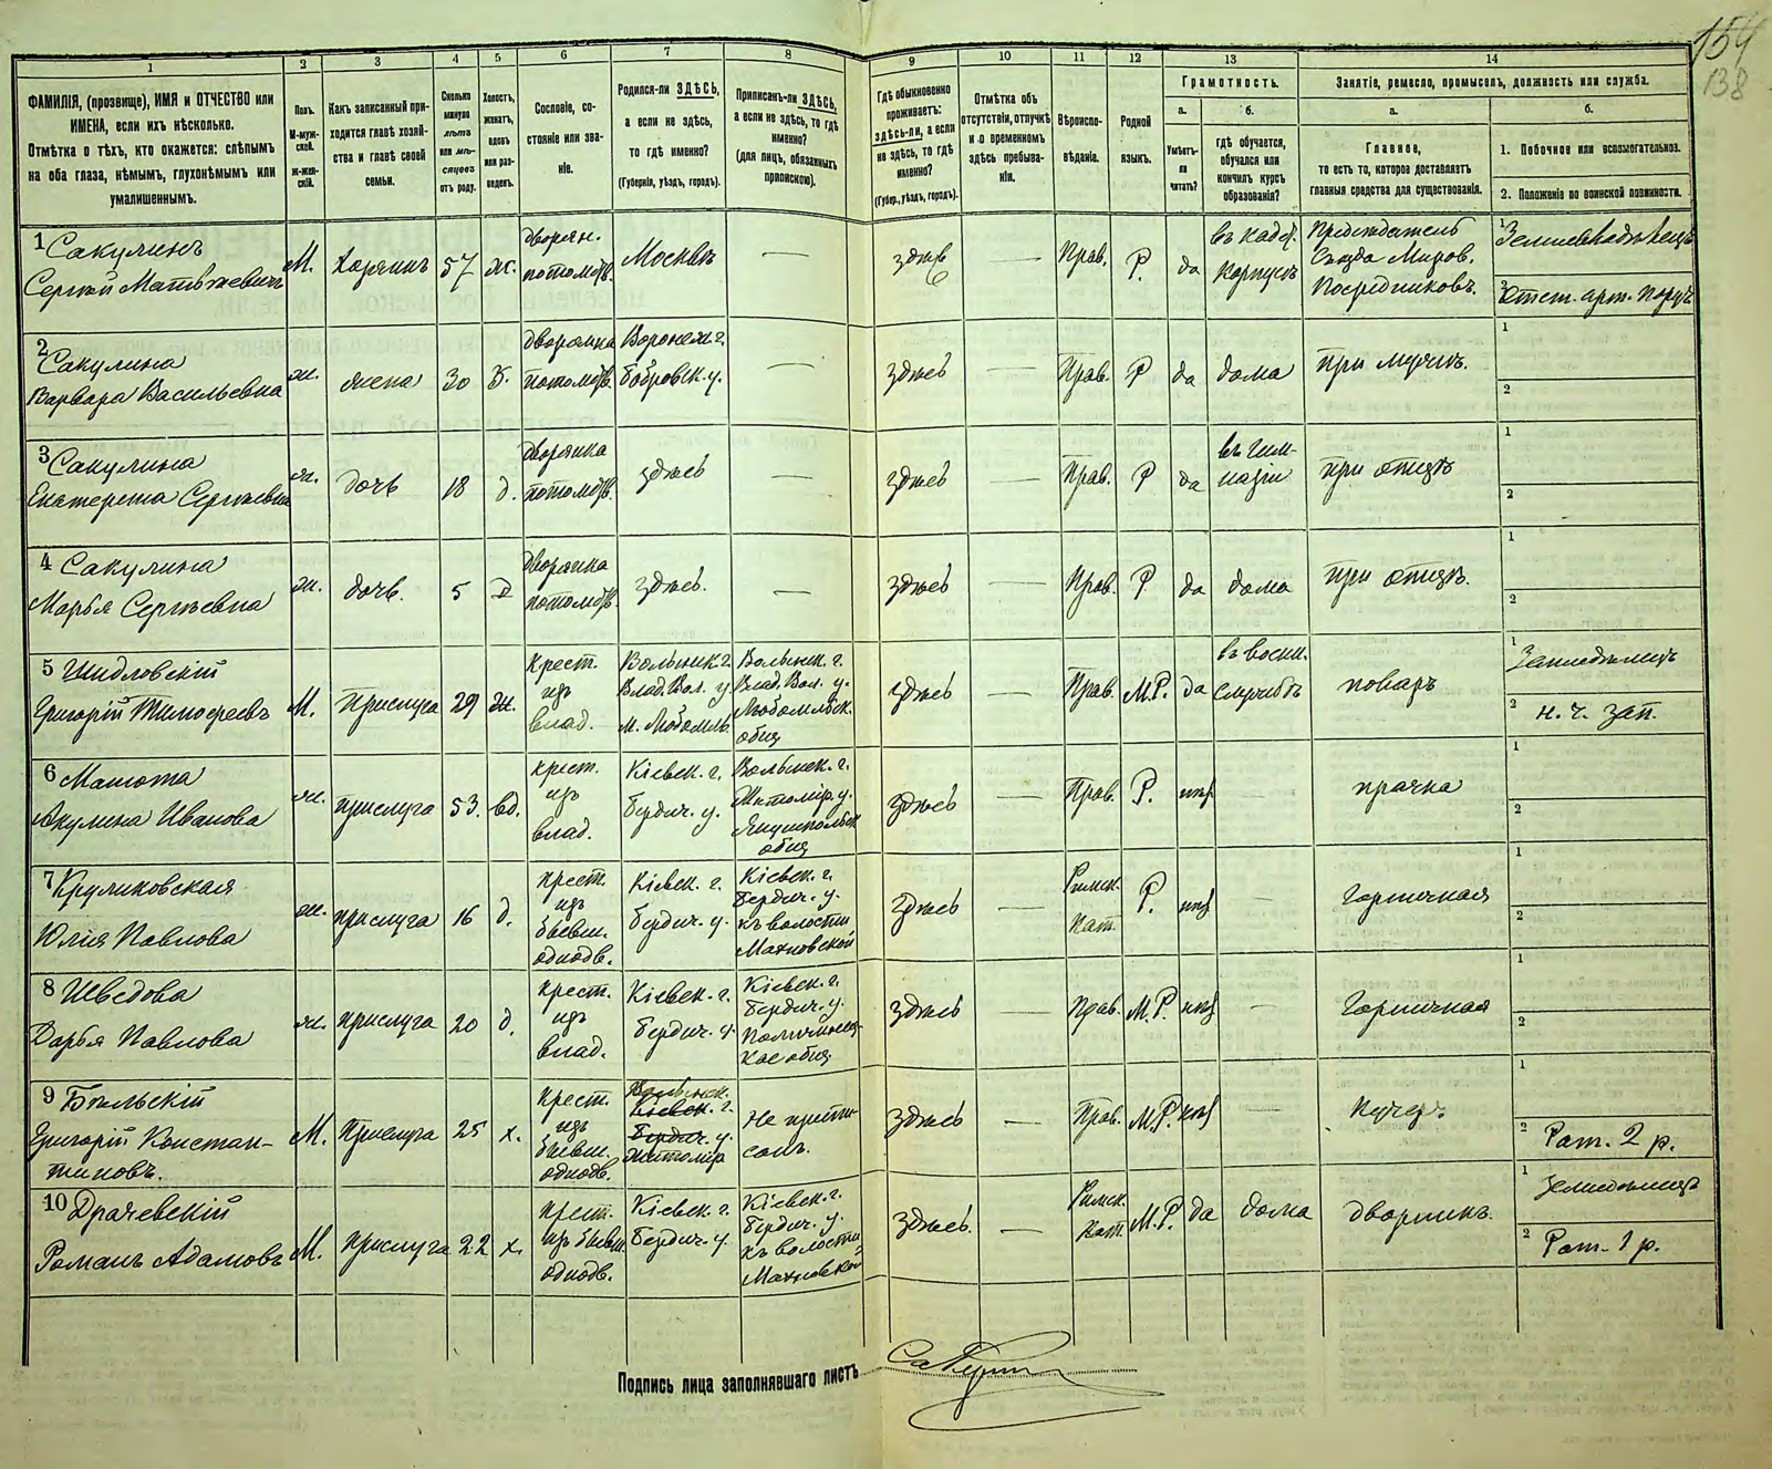 154
138
1
2
3
4
5
6
7
8
9
10
11
12
13
14
ФАМИЛІЯ, (прозвище), ИМЯ и ОТЧЕСТВО или
ИМЕНА, если ихъ нѣсколько.
Отмѣтка о тѣхъ, кто окажется: слѣпымъ
на оба глаза, нѣмымъ, глухонѣмымъ или
умалишеннымъ.
Полъ.
М-муж-
ской.
ж-жен-
скій.
Какъ записанный при-
ходится главѣ хозяй-
ства и главѣ своей
семьи.
Сколько
минуло
лѣтъ
или мѣ-
сяцевъ
отъ роду.
Холостъ,
женатъ,
вдовъ
или раз-
веденъ.
Сословіе, со-
стояніе или зва-
ніе.
Родился-ли ЗДѢСЬ,
а если не здѣсь,
то гдѣ именно?
(Губернія, уѣздъ, городъ).
Приписанъ-ли ЗДѢСЬ,
а если не здѣсь, то гдѣ
именно?
(для лицъ, обязанныхъ
припискою).
Гдѣ обыкновенно
проживаетъ:
здѣсь-ли, а если
не здѣсь, то гдѣ
именно?
(Губер., уѣздъ, городъ).
Отмѣтка объ
отсутствіи, отлучкѣ
и о временномъ
здѣсь пребыва-
ніи.
Вѣроиспо-
вѣданіе.
Родной
языкъ.
Грамотность.
а.
Умѣетъ-
ли
читать?
б.
гдѣ обучается,
обучался или
кончилъ курсъ
образованія?
Занятіе, ремесло, промыселъ, должность или служба.
а.
Главное,
то есть то, которое доставляетъ
главныя средства для существованія.
б.
1. Побочное или вспомогательное.
2. Положеніе по воинской повинности.
1 Сакулинъ
Сергѣй Матвѣевичъ
М.
Хозяинъ
57
ж.
дворян.
потомств.
Москвѣ
—
здѣсь
—
Прав.
Р.
да
въ кадет.
корпусѣ
Предсѣдатель
Съѣзда Миров.
Посредниковъ.
1 Землевладѣлецъ
2 Отст. арт. поруч.
2 Сакулина
Варвара Васильевна
ж.
жена
30
З.
дворянка
потомств.
Воронеж. г.
бобровск. у.
—
здѣсь
—
Прав.
Р
да
дома
при мужѣ.
1
2
3 Сакулина
Екатерина Сергѣевна
ж.
дочь
18
д.
дворянка
потомств.
здѣсь
—
здѣсь
—
Прав.
Р
да
въ гим-
назіи
при отцѣ
1
2
4 Сакулина
Марья Сергѣевна
ж.
дочь.
5
д
дворянка
потомств.
здѣсь.
—
здѣсь
—
Прав.
Р.
да
дома
при отцѣ.
1
2
5 Шидловскій
Григорій Тимофеевъ
М.
Прислуга
29
ж.
крест.
изъ
влад.
Волынск. г.
Влад. Вол. у.
м. Любомль.
Волынск. г.
Влад. Вол. у.
Любомльск.
общ
здѣсь
—
Прав.
М.Р.
да
въ воен.
службѣ
поваръ
1 Земледѣлецъ
2 н. ч. зап.
6 Машота
Акулина Иванова
ж.
прислуга
53.
вд.
крест.
изъ
влад.
Кіевск. г.
бердич. у.
Волынск. г.
Житомір. у.
Янушпольск
общ
здѣсь
—
Прав.
Р.
нѣт
—
прачка
1
2
7 Круликовская
Юлія Павлова
ж.
прислуга
16
д.
крест.
изъ
бывш.
однодв.
Кіевск. г.
бердич. у.
Кіевск. г.
бердич. у.
къ волости
Махновской
здѣсь
—
Римск.
кат.
Р.
нѣт
—
Горничная
1
2
8 Шведова
Дарья Павлова
ж.
прислуга
20
д.
крест.
изъ
влад.
Кіевск. г.
бердич. у.
Кіевск. г.
бердич. у.
кое общ.
здѣсь
—
Прав.
М.Р.
нѣт
—
Горничная
1
2
9 Бѣльскій
Григорій Констан-
тиновъ.
М.
Прислуга
25
х.
крест.
изъ
бывш.
однодв.
Волынск.
Кіевск. г.
бердич. у.
житомір
Не припи-
санъ.
здѣсь
—
Прав.
М.Р.
нѣт
—
кучеръ.
1
2 Рат. 2 р.
10 Драчевскій
Романъ Адамовъ
М.
прислуга
22
х.
крест.
изъ бывш.
однодв.
Кіевск. г.
Бердич. у.
Кіевск. г.
бердич. у.
къ волости
Махновской
здѣсь.
—
Римск.
кат.
М.Р.
да
дома
дворникъ.
1 Земледѣлецъ
2 Рат. 1 р.
Подпись лица заполнявшаго листъ
Сакулин